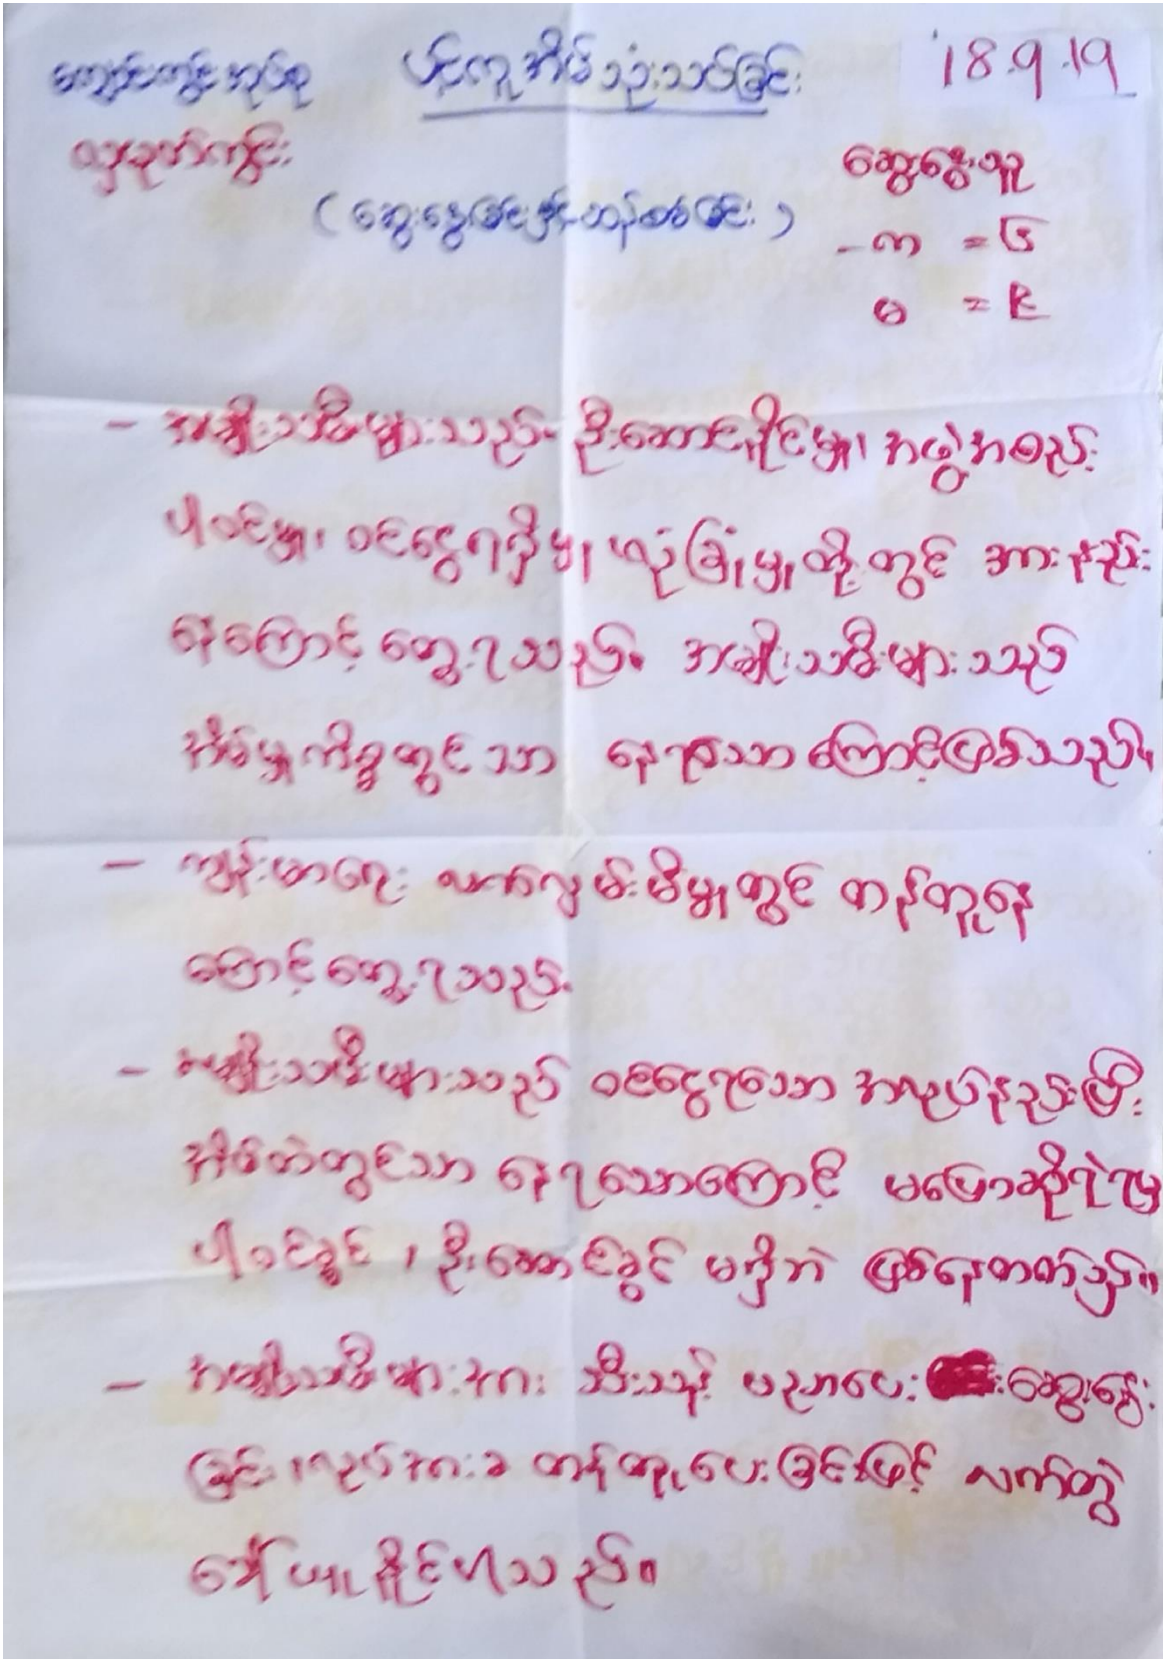 ကျောင်းကွင်းအုပ်စု ပင့်ကူအိမ်သုံးသပ်ခြင်း 18.9.19
လှေခုတ်ကွင်း
(ဆွေးနွေးခြင်းနှင့်ဟန်စစ်ခြင်း)
ဆွေးနွေးသူ
- ကာ = ၆
မ = ၉
- အမျိုးသမီးများသည် ဦးဆောင်နိုင်မှု၊ အဖွဲ့အစည်း
ပါဝင်မှု၊ ဝင်ငွေရရှိမှု၊ ယုံကြုံမှုတို့တွင် အားနည်း
နေကြောင့် တွေ့ရသည်။ အမျိုးသမီးများသည်
အိမ်မှုကိစ္စတွင်သာ နေရသောကြောင့်ဖြစ်သည်။
- ကျန်းမာရေး လက်လှမ်းမီမှုတွင် တန်းတူနေ
ကြောင့် တွေ့ရသည်။
- အမျိုးသမီးများသည် ဝင်ငွေရသော အလုပ်နည်းပြီး
အိမ်ထဲတွင်သာ နေရသောကြောင့် မပြောဆိုရဲရမှု
ပါဝင်ခွင့်၊ ဦးဆောင်ခွင့် မရှိဘဲ ဖြစ်နေတတ်သည်။
- အမျိုးသမီးများအား သီးသန့် ပညာပေး ဆွေးနွေး
ခြင်း၊ လုပ်အားခ တန်းတူပေးခြင်းဖြင့် လက်တွဲ
ခေါ်ယူနိုင်ပါသည်။